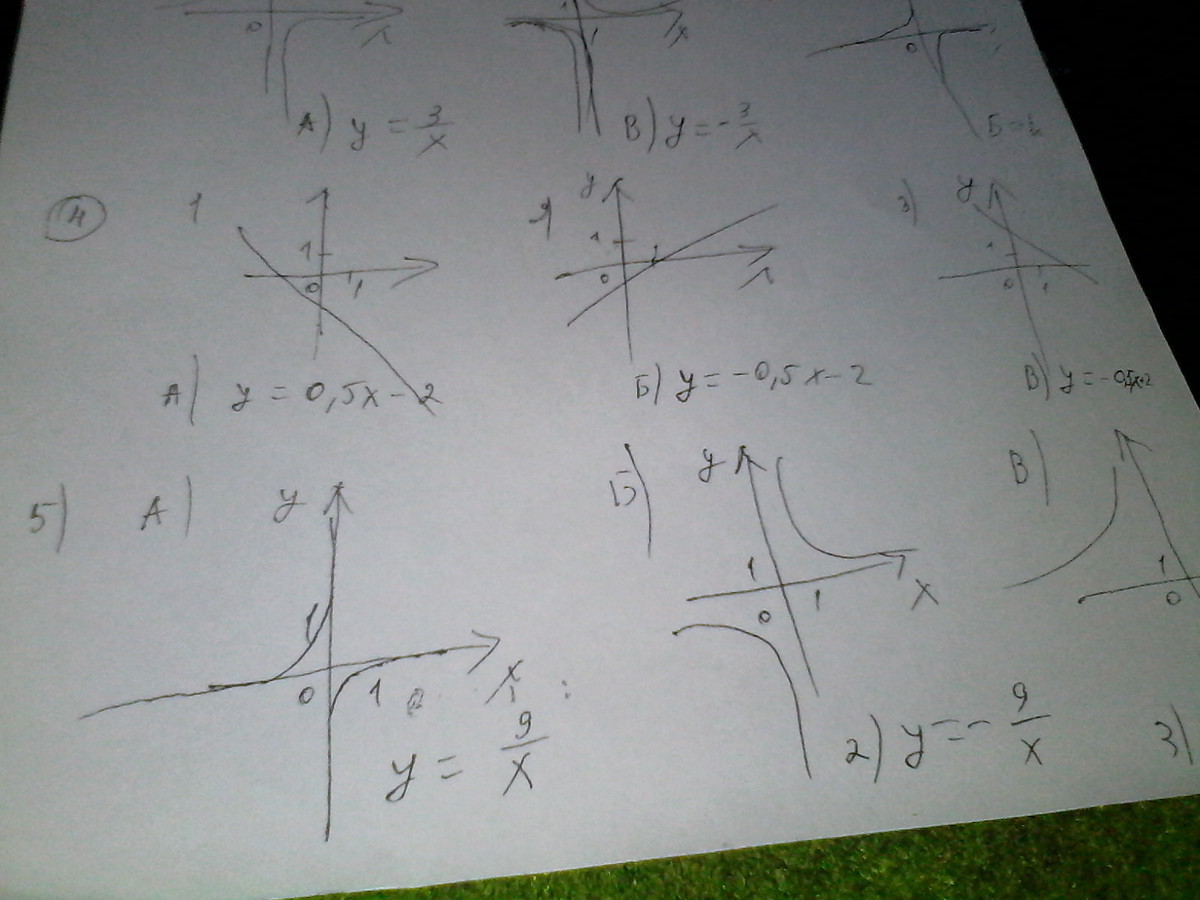 0 x 1 1 x 0
А) y = 3/x В) y = - 3/x Б
4 1 y 3) y
1 1 1 1 1
0 1 0 x 0 1
А) y = 0,5x - 2 Б) y = -0,5x - 2 В) y = -0,5x+2
5) А) y Б) y В)
1 1 1
0 1 x 0 1 x 0
y = 9/x 2) y = - 9/x 3)